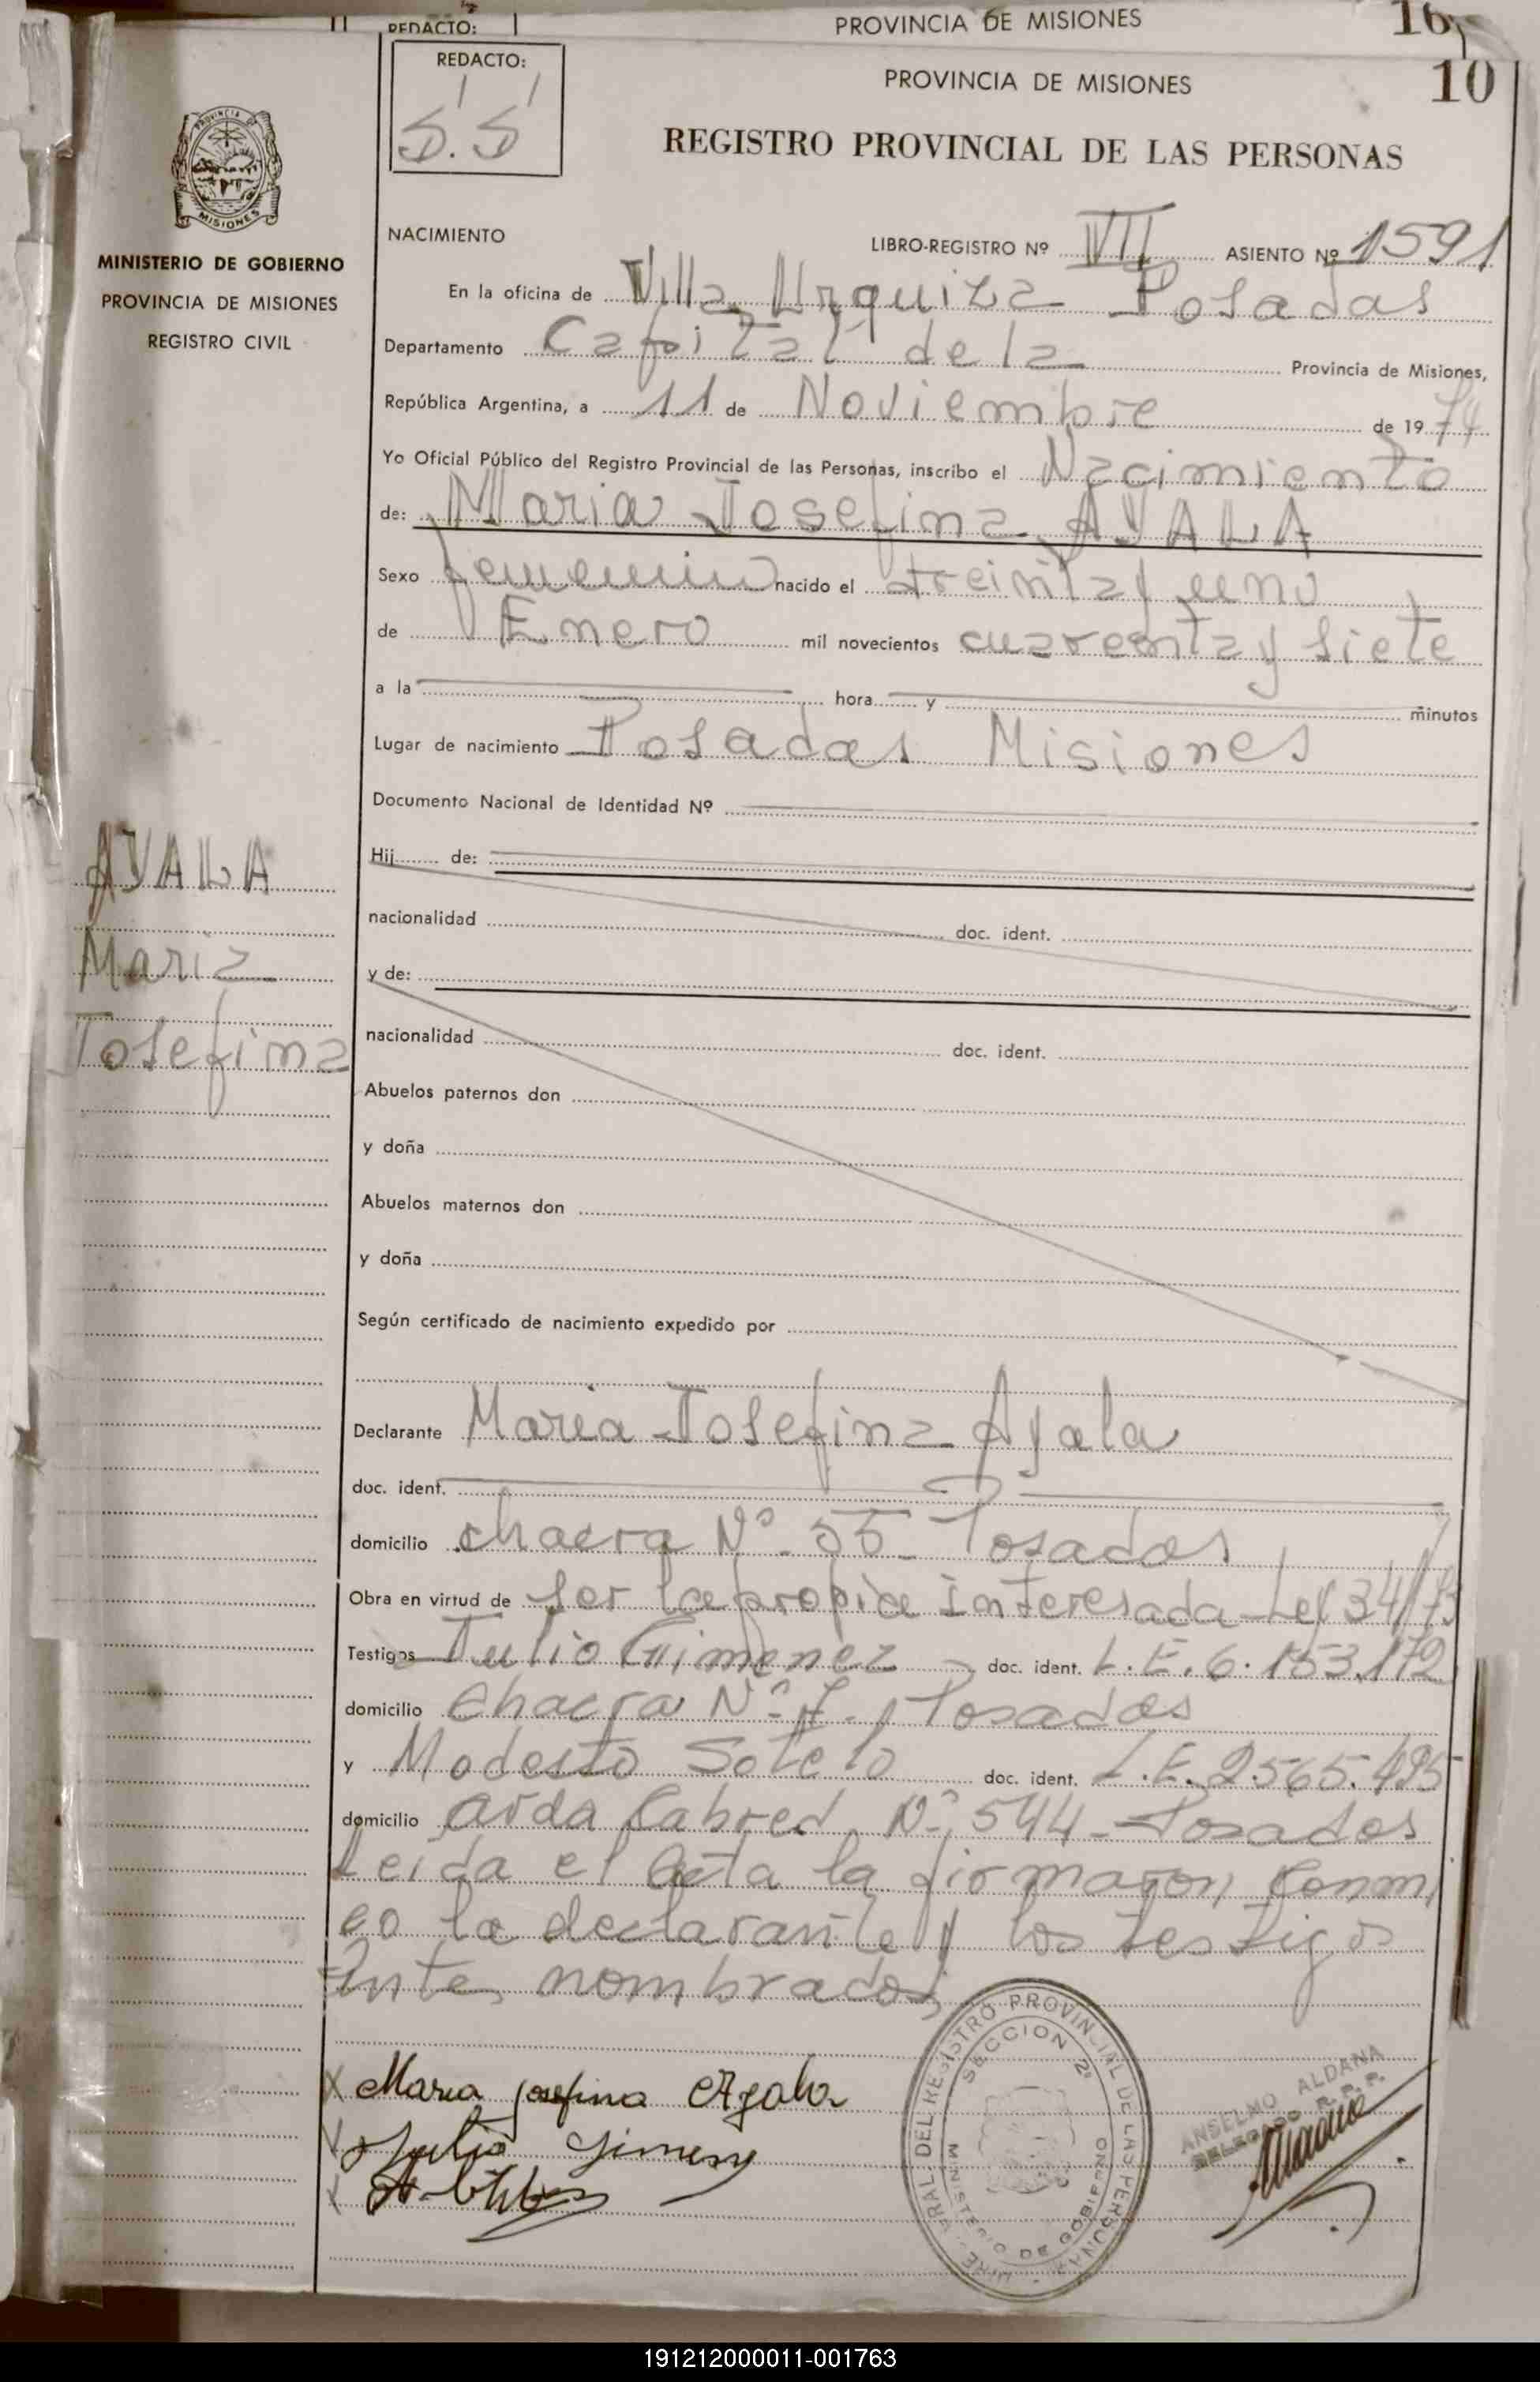 REDACTO:
PROVINCIA DE MISIONES
16
REDACTO:
S. S
PROVINCIA DE MISIONES
10
REGISTRO PROVINCIAL DE LAS PERSONAS
PROVINCIA DE
MISIONES
MINISTERIO DE GOBIERNO
PROVINCIA DE MISIONES
REGISTRO CIVIL
NACIMIENTO
LIBRO-REGISTRO Nº VII ASIENTO Nº 1591
En la oficina de Villa Urquiza Posadas
Departamento Capital de la Provincia de Misiones,
República Argentina, a 11 de Noviembre de 1974
Yo Oficial Público del Registro Provincial de las Personas, inscribo el Nacimiento
de: Maria Josefina AYALA
Sexo femenino nacido el treinta y uno
de Enero mil novecientos cuarenta y siete
a la hora y minutos
Lugar de nacimiento Posadas Misiones
Documento Nacional de Identidad Nº
AYALA
Maria
Josefina
Hij de:
nacionalidad doc. ident.
y de:
nacionalidad doc. ident.
Abuelos paternos don
y doña
Abuelos maternos don
y doña
Según certificado de nacimiento expedido por
Declarante Maria Josefina Ayala
doc. ident.
domicilio chacra Nº 55 - Posadas
Obra en virtud de ser la propia interesada - Ley 34/73
Testigos Julio Gimenez doc. ident. L.E. 6.153.172
domicilio Chacra Nº 7 - Posadas
y Modesto Sotelo doc. ident. L.E. 2.565.495
domicilio Avda Cabred Nº 544 - Posadas
Leida el Acta la firmaron Conmi
go la declarante y los testigos
Antes nombrados
X Maria Josefina Ayala
Julio Gimenez
REGISTRO PROVINCIAL DE LAS PERSONAS
SECCION 2º
MINISTERIO DE GOBIERNO
ANSELMO ALDANA
DELEGADO R.P.P.
191212000011-001763